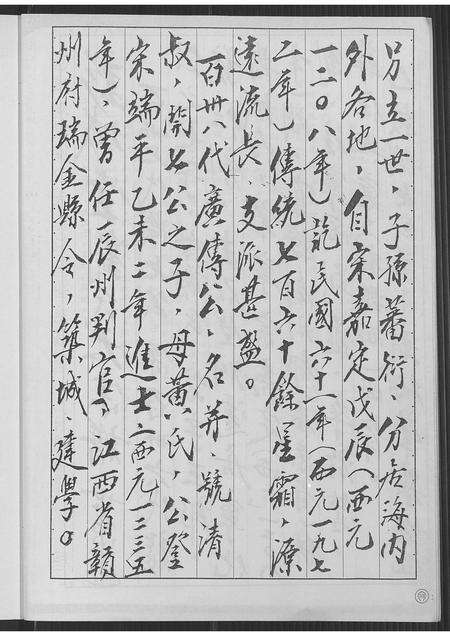 另立一世，子孫蕃衍、分居海內
外各地，自宋嘉定戊辰（西元
一二〇八年）訖民國六十一年（西元一九七
二年）傳統七百六十餘星霜，源
遠流長、支派甚盛。
百卅八代廣傳公、名莽、號清
叔，開七公之子，母黃氏，公登
宋端平乙未二年進士（西元一二三五
年），曾任辰州判官、江西省贛
州府瑞金縣令，築城、建學。